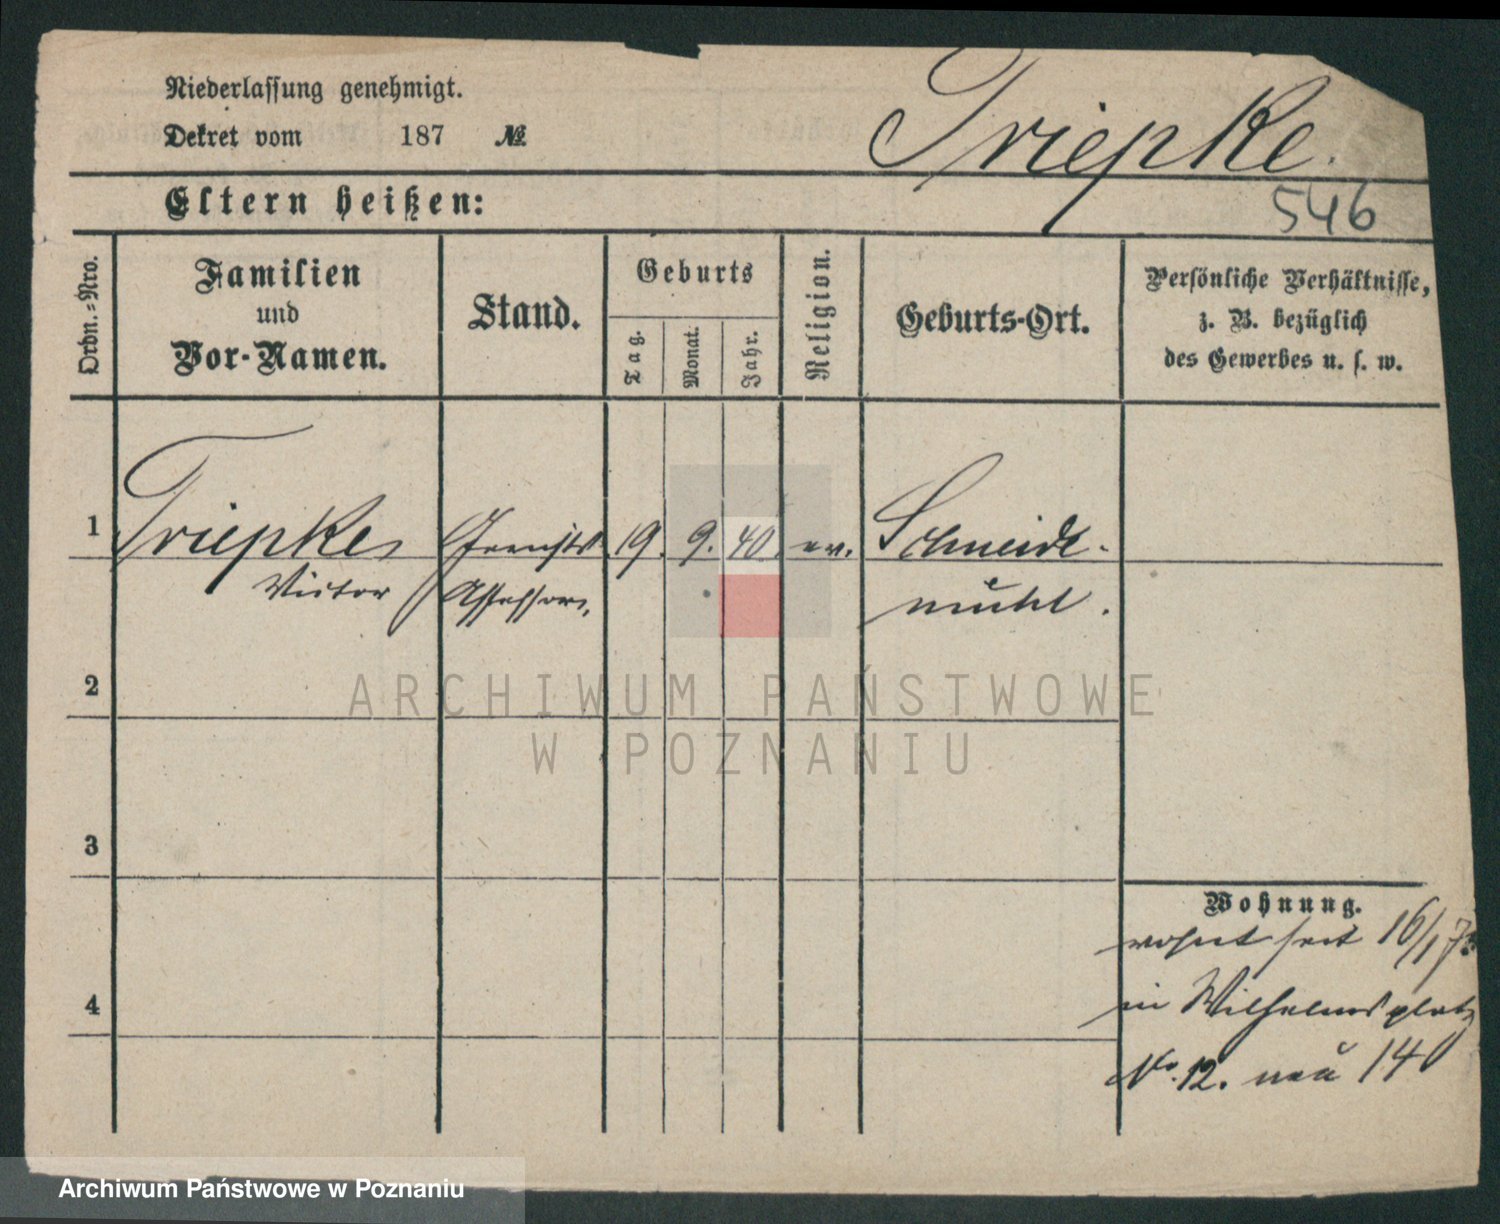 Niederlassung genehmigt.
Dekret vom 187 №
Triepke.
546
Eltern heißen:
Ordn.=Nro.
Familien
und
Vor-Namen.
Stand.
Geburts
Tag.
Monat.
Jahr.
Religion.
Geburts-Ort.
Persönliche Verhältnisse,
z. B. bezüglich
des Gewerbes u. s. w.
1 Triepke, Gerichts 19. 9. 40. ev. Schneide-
Victor Assessor, mühl.
2
3
4
Wohnung.
wohnt seit 16/1 7
in Wilhelmsplatz
No. 12. neu 14
ARCHIWUM PAŃSTWOWE
W POZNANIU
Archiwum Państwowe w Poznaniu